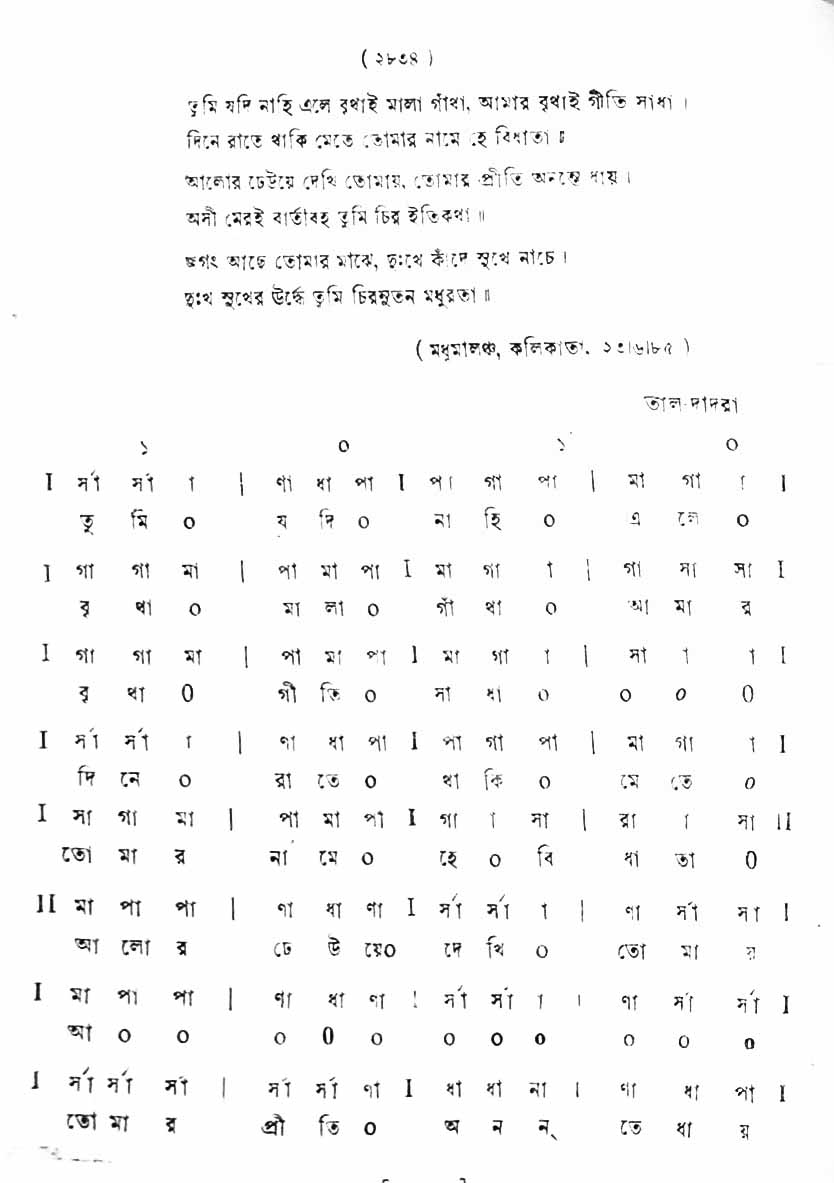 ( ২৮৩৪ )
তুমি যদি নাহি এলে বৃথাই মালা গাঁথা, আমার বৃথাই গীতি সাধা ।
দিনে রাতে থাকি মেতে তোমার নামে হে বিধাতা ॥
আলোর ঢেউয়ে দেখি তোমায়, তোমার প্রীতি অনন্তে ধায় ।
অসী মেরই বার্তাবহ তুমি চির ইতিকথা ॥
জগৎ আছে তোমার মাঝে, দুঃখে কাঁদে সুখে নাচে ।
দুঃখ সুখের উর্দ্ধে তুমি চিরনুতন মধুরতা ॥
( মধুমালঞ্চ, কলিকাতা. ২৩।৬।৮৫ )
তাল-দাদরা
১ ০ ১ ০
I র্সা র্সা া | ণা ধা পা I পা গা পা | মা গা া I
তু মি ০ য দি ০ না হি ০ এ লে ০
I গা গা মা | পা মা পা I মা গা া | গা সা সা I
বৃ থা ০ মা লা ০ গাঁ থা ০ আ মা র
I গা গা মা | পা মা পা I মা গা া | সা া া I
বৃ থা ০ গী তি ০ সা ধা ০ ০ ০ ০
I র্সা র্সা া | ণা ধা পা I পা গা পা | মা গা া I
দি নে ০ রা তে ০ থা কি ০ মে তে ০
I সা গা মা | পা মা পা I গা া সা | রা া সা II
তো মা র না মে ০ হে ০ বি ধা তা ০
II মা পা পা | ণা ধা ণা I র্সা র্সা া | ণা র্সা সা I
আ লো র ঢে উ য়ে০ দে খি ০ তো মা য়
I মা পা পা | ণা ধা ণা I র্সা র্সা া | ণা র্সা র্সা I
আ ০ ০ ০ ০ ০ ০ ০ ০ ০ ০ ০
I র্সা র্সা র্সা | র্সা র্সা ণা I ধা ধা না | ণা ধা পা I
তো মা র প্রী তি ০ অ ন ন্ তে ধা য়